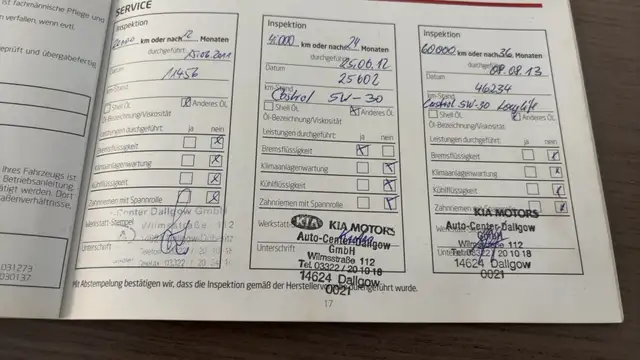 ist fachmännische Pflege und
verfallen, wenn evtl.
geprüft und übergabefertig
Ihres Fahrzeugs ist
Betriebsanleitung.
tätigt werden. Dort
aßenverhältnisse,
031273
030137
SERVICE
Inspektion
km oder nach 12 Monaten
durchgeführt: 15.06.2011
Datum
11456
km-Stand
Shell Öl Anderes Öl
Öl-Bezeichnung/Viskosität
Leistungen durchgeführt: ja nein
Bremsflüssigkeit
Klimaanlagenwartung
Kühlflüssigkeit
Zahnriemen mit Spannrolle
Center Dallgow GmbH
Werkstatt-Stempel Wilmsstraße 112
Unterschrift
Inspektion
km oder nach 24 Monaten
durchgeführt: 25.06.12
Datum
25602
km-Stand
Castrol 5W-30
Shell Öl Anderes Öl
Öl-Bezeichnung/Viskosität
Leistungen durchgeführt: ja nein
Bremsflüssigkeit
Klimaanlagenwartung
Kühlflüssigkeit
Zahnriemen mit Spannrolle
KIA KIA MOTORS
Auto-Center-Dallgow
GmbH
Unterschrift Wilmsstraße 112
Tel. 03322 / 20 10 18
14624 Dallgow
0021
Inspektion
60000 km oder nach 36 Monaten
durchgeführt: 09.08.13
Datum
46234
km-Stand
Castrol 5W-30 Longlife
Shell Öl Anderes Öl
Öl-Bezeichnung/Viskosität
Leistungen durchgeführt: ja nein
Bremsflüssigkeit
Klimaanlagenwartung
Kühlflüssigkeit
Zahnriemen mit Spannrolle
KIA MOTORS
Auto-Center-Dallgow
GmbH
Unterschrift Wilmsstraße 112
Tel. 03322 / 20 10 18
14624 Dallgow
0021
Mit Abstempelung bestätigen wir, dass die Inspektion gemäß der Herstellervorgaben durchgeführt wurde.
17